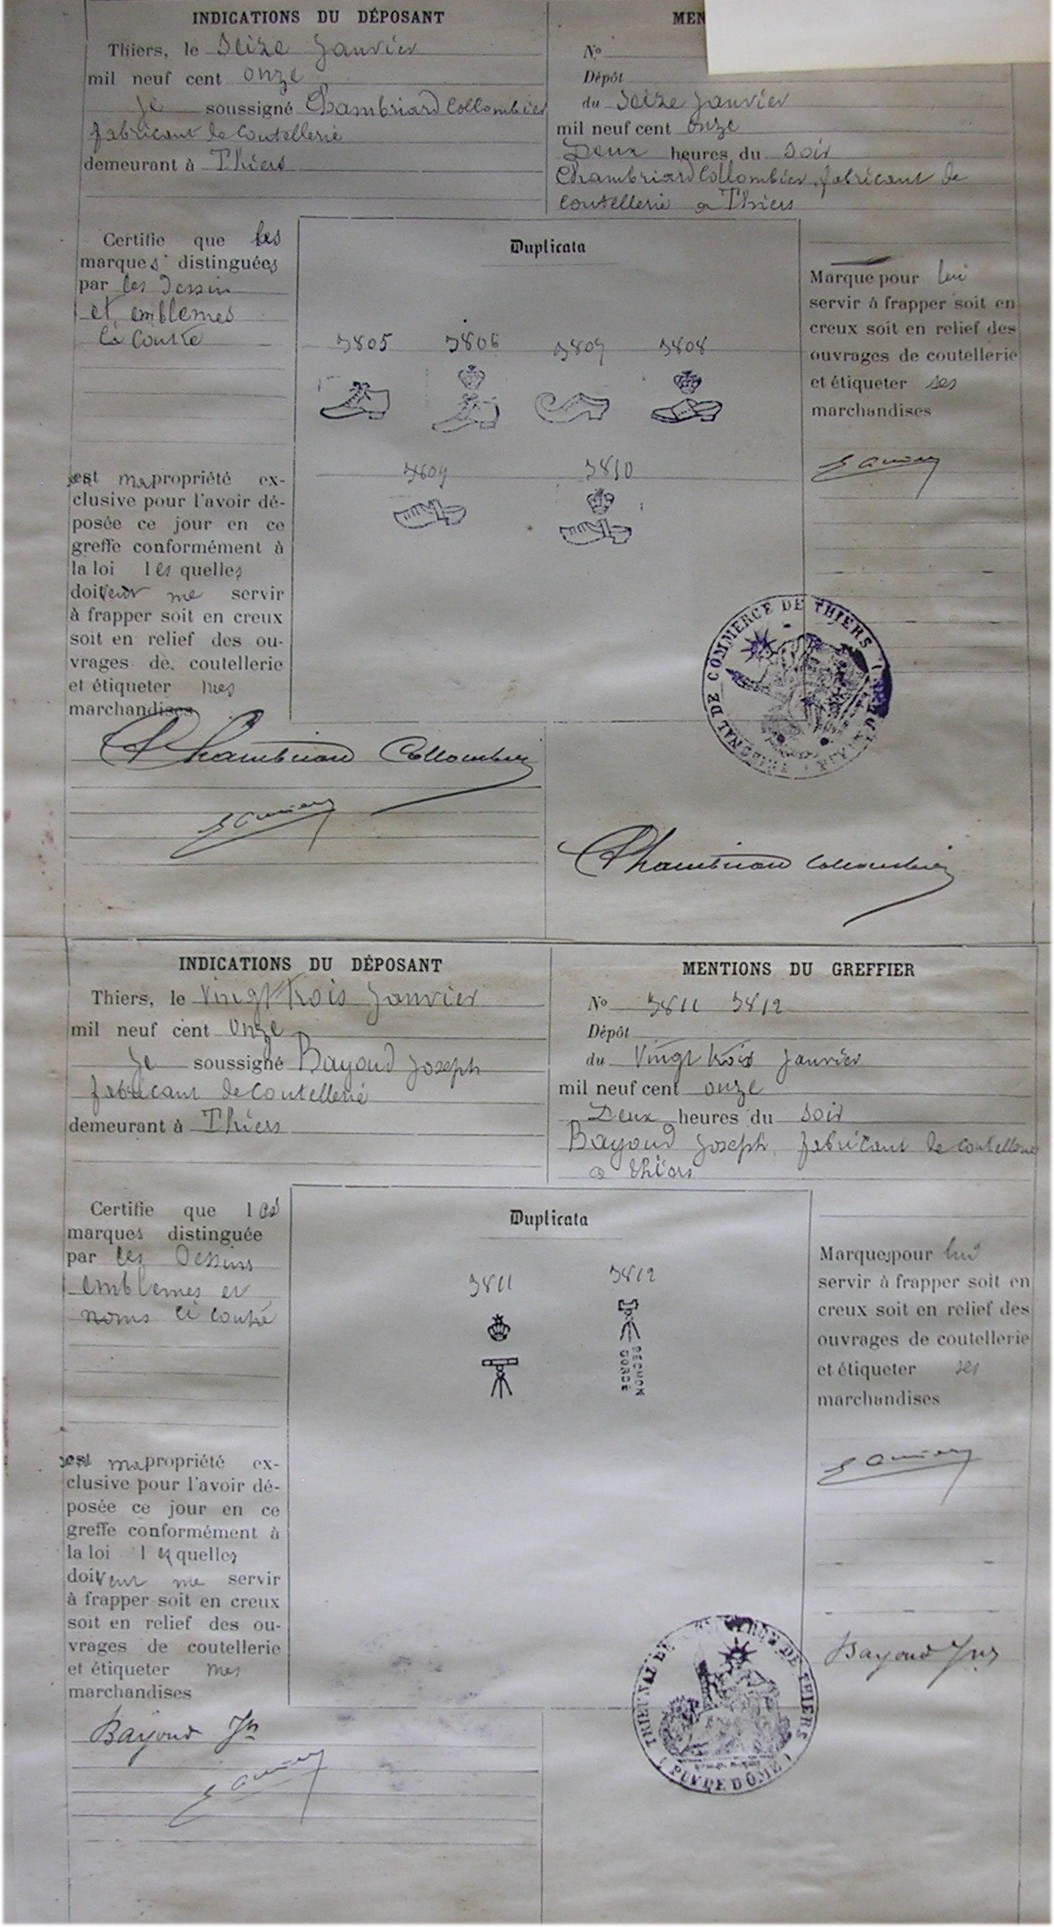 INDICATIONS DU DÉPOSANT
Thiers, le Seize Janvier
mil neuf cent onze
Je soussigné Chambriard Collombier
fabricant de Coutellerie
demeurant à Thiers
MEN
No
Dépôt
du Seize Janvier
mil neuf cent onze
Deux heures du soir
Chambriard Collombier, fabricant de
Coutellerie a Thiers
Certifie que les
marques distinguées
par les Dessin
et emblemes
Duplicata
3805 3806 3807 3808
3809 3810
Marque pour lui
servir à frapper soit en
creux soit en relief des
ouvrages de coutellerie
et étiqueter ses
marchandises
est ma propriété ex-
clusive pour l'avoir dé-
posée ce jour en ce
greffe conformément à
la loi les quelles
doivent me servir
à frapper soit en creux
soit en relief des ou-
vrages de coutellerie
et étiqueter mes
marchandises
TRIBUNAL DE COMMERCE DE THIERS
Chambriard Collombier
Chambriard Collombier
INDICATIONS DU DÉPOSANT
Thiers, le Vingt trois Janvier
mil neuf cent Onze
Je soussigné Bayoud Joseph
fabricant de Coutellerie
demeurant à Thiers
MENTIONS DU GREFFIER
No 3811 3812
Dépôt
du Vingt trois Janvier
mil neuf cent onze
Deux heures du soir
Bayoud Joseph, fabricant de coutellerie
a thiers
Certifie que les
marques distinguée
par les Dessins
emblemes et
noms
Duplicata
3811 3812
Marques pour lui
servir à frapper soit en
creux soit en relief des
ouvrages de coutellerie
et étiqueter ses
marchandises
est ma propriété ex-
clusive pour l'avoir dé-
posée ce jour en ce
greffe conformément à
la loi les quelles
doivent me servir
à frapper soit en creux
soit en relief des ou-
vrages de coutellerie
et étiqueter mes
marchandises
TRIBUNAL DE COMMERCE DE THIERS
(PUY DE DÔME)
Bayoud Jh
Bayoud